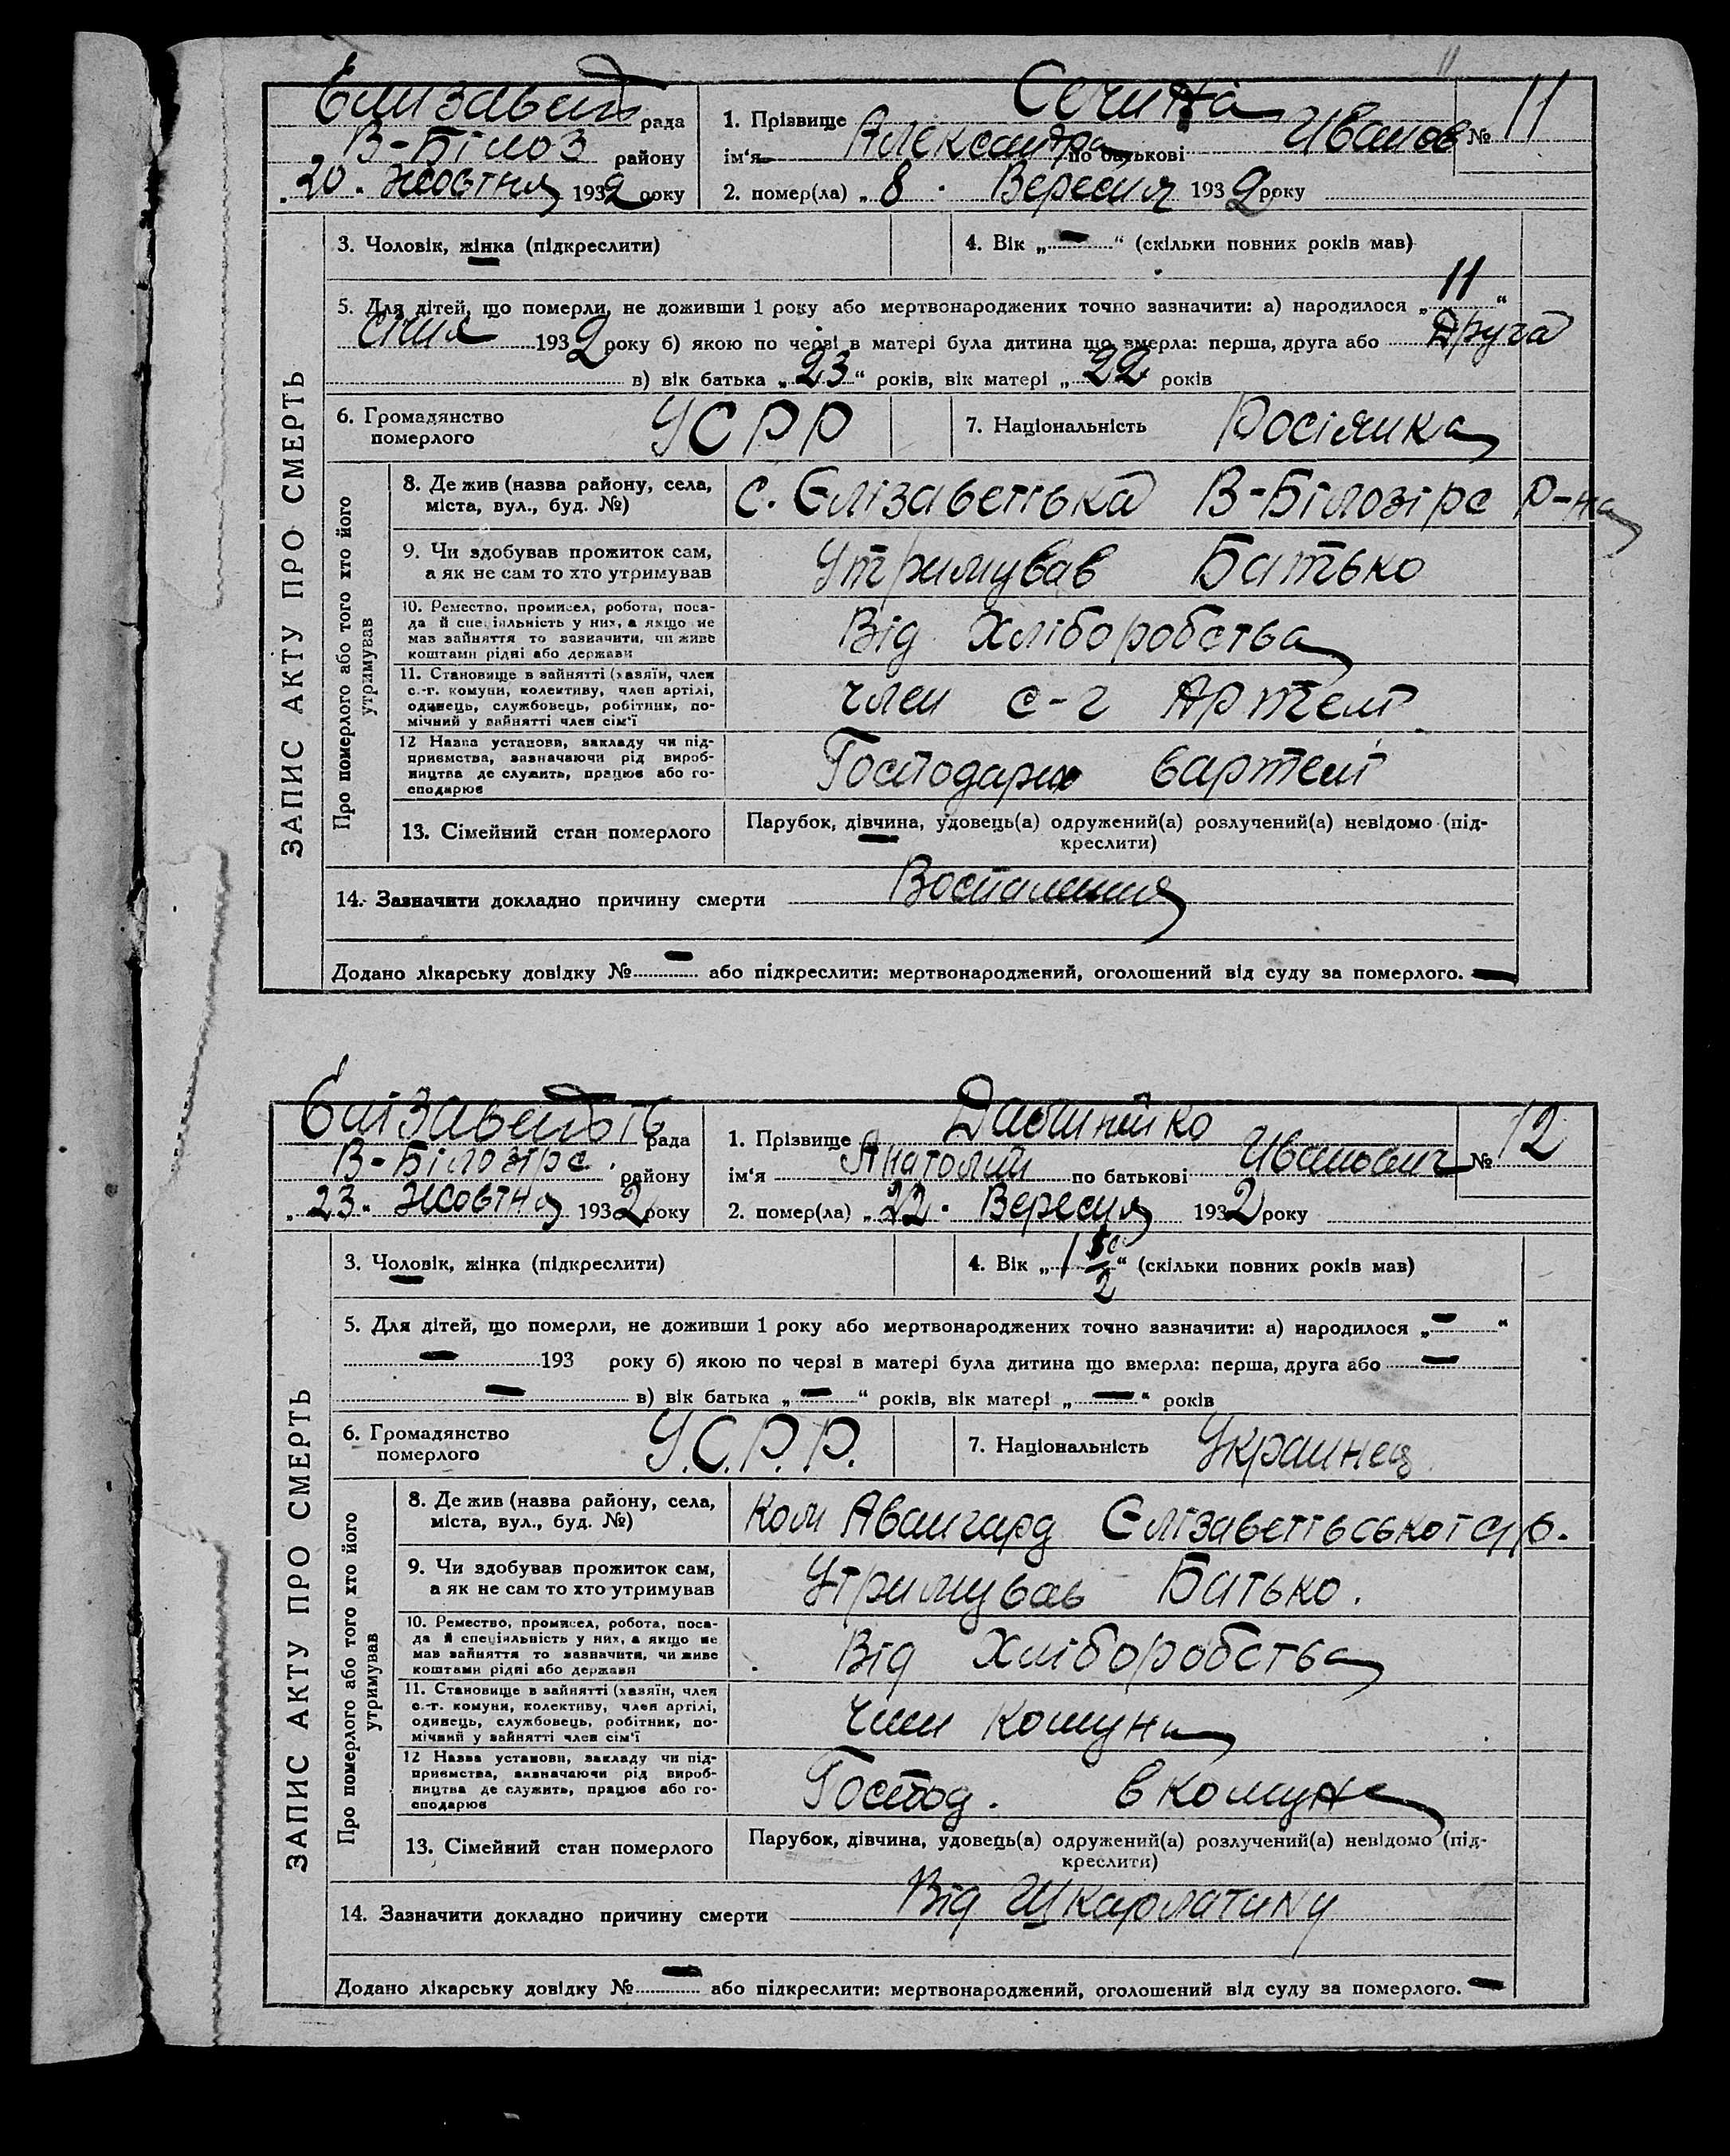 11
Єлизавет рада
В-Білоз району
„20. жовтня 1932 року
1. Прізвище Сечина
ім‘я Александра по батькові Иванов № 11
2. помер(ла) „8. Вересня 1932 року
ЗАПИС АКТУ ПРО СМЕРТЬ
3. Чоловік, жінка (підкреслити)
4. Вік „—“ (скільки повних років мав)
5. Для дітей, що померли, не доживши 1 року або мертвонароджених точно зазначити: а) народилося „11“
січня 1932 року б) якою по черзі в матері була дитина що вмерла: перша, друга або Друга
в) вік батька „23“ років, вік матері „22 років
6. Громадянство
померлого
УСРР
7. Національність Росіянка
Про померлого або того хто його
утримував
8. Де жив (назва району, села,
міста, вул., буд. №)
с. Єлізаветівка В-Білозірс р-на
9. Чи здобував прожиток сам,
а як не сам то хто утримував
Утримував Батько
10. Ремество, промисел, робота, поса-
да й спеціяльність у них, а якщо не
мав зайняття то зазначити, чи живе
коштами рідні або держави
Від Хліборобства
11. Становище в зайнятті (хазяїн, член
с.-г. комуни, колективу, член артілі,
одинець, службовець, робітник, по-
мічний у зайнятті член сім‘ї
член с-г Артелі
12 Назва установи, закладу чи під-
приємства, зазначаючи рід вироб-
ництва де служить, працює або го-
сподарює
вартелі
13. Сімейний стан померлого
Парубок, дівчина, удовець(а) одружений(а) розлучений(а) невідомо (під-
креслити)
14. Зазначити докладно причину смерти Воспаления
Додано лікарську довідку №— або підкреслити: мертвонароджений, оголошений від суду за померлого. —
рада
В-Білозірс. району
„23. жовтня 1932 року
1. Прізвище
ім‘я Анатолий по батькові Иванович № 12
2. помер(ла) „22. Вересня 1932 року
ЗАПИС АКТУ ПРО СМЕРТЬ
3. Чоловік, жінка (підкреслити)
4. Вік „1 “ (скільки повних років мав)
5. Для дітей, що померли, не доживши 1 року або мертвонароджених точно зазначити: а) народилося „—“
— 193 року б) якою по черзі в матері була дитина що вмерла: перша, друга або —
— в) вік батька „—“ років, вік матері „—“ років
6. Громадянство
померлого
У.С.Р.Р.
7. Національність Украинец
Про померлого або того хто його
утримував
8. Де жив (назва району, села,
міста, вул., буд. №)
Ком Авангард Єлізаветівської с/р.
9. Чи здобував прожиток сам,
а як не сам то хто утримував
Утримував Батько.
10. Ремество, промисел, робота, поса-
да й спеціяльність у них, а якщо не
мав зайняття то зазначити, чи живе
коштами рідні або держави
Від Хліборобства
11. Становище в зайнятті (хазяїн, член
с.-г. комуни, колективу, член артілі,
одинець, службовець, робітник, по-
мічний у зайнятті член сім‘ї
член комуни
12 Назва установи, закладу чи під-
приємства, зазначаючи рід вироб-
ництва де служить, працює або го-
сподарює
Господ. в комуне
13. Сімейний стан померлого
Парубок, дівчина, удовець(а) одружений(а) розлучений(а) невідомо (під-
креслити)
14. Зазначити докладно причину смерти Від Шкарлатину
Додано лікарську довідку №— або підкреслити: мертвонароджений, оголошений від суду за померлого. —